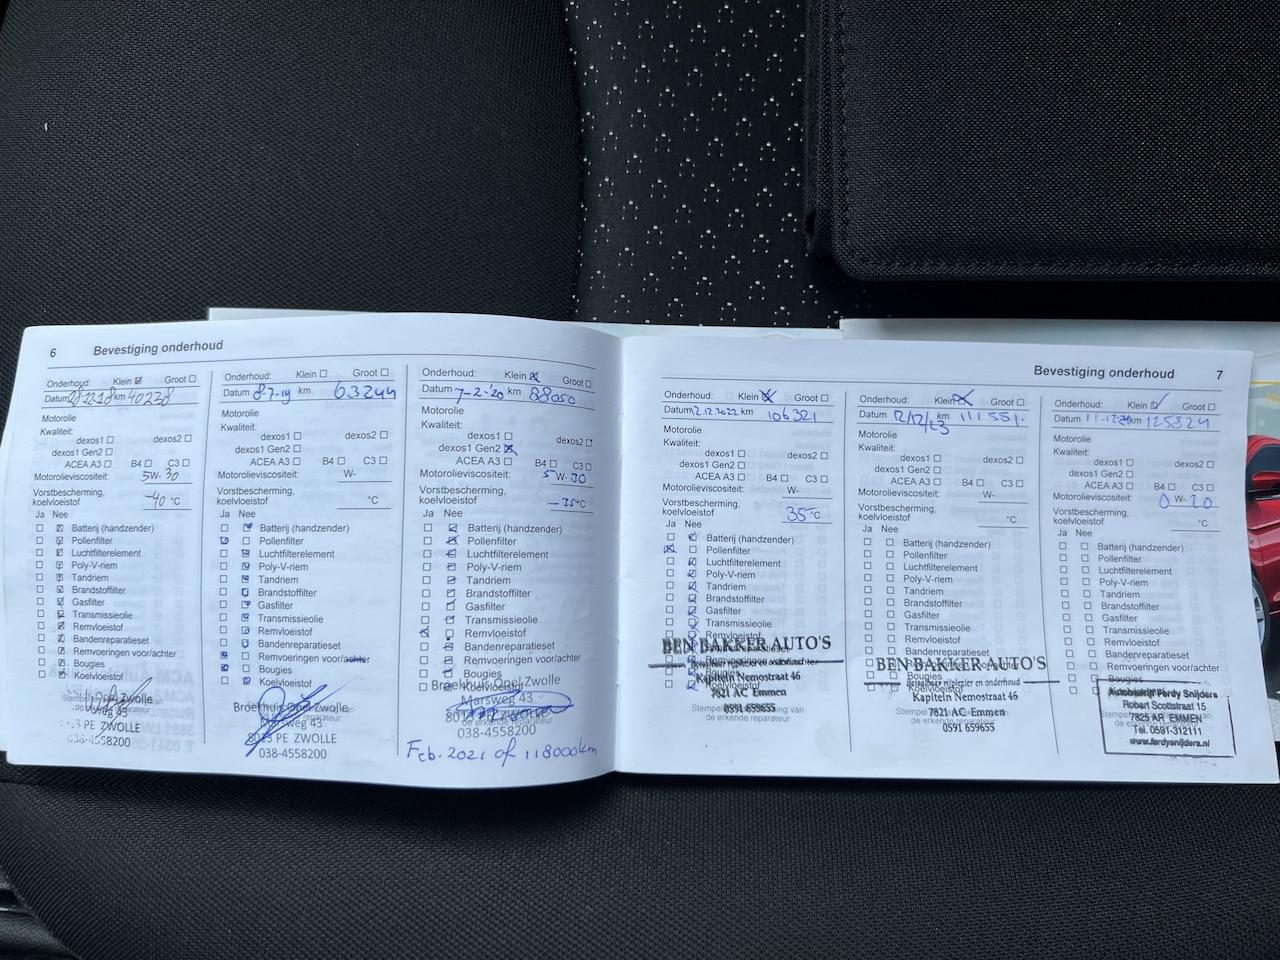 6 Bevestiging onderhoud
Onderhoud: Klein Groot
Datum 28.12.18 km 40238
Motorolie
Kwaliteit:
dexos1 dexos2
dexos1 Gen2
ACEA A3 B4 C3
Motorolieviscositeit: 5W-30
Vorstbescherming,
koelvloeistof -40 °C
Ja Nee
Batterij (handzender)
Pollenfilter
Luchtfilterelement
Poly-V-riem
Tandriem
Brandstoffilter
Gasfilter
Transmissieolie
Remvloeistof
Bandenreparatieset
Remvoeringen voor/achter
Bougies
Koelvloeistof
Opel Zwolle
43
PE ZWOLLE
038-4558200
Onderhoud: Klein Groot
Datum 8-7-19 km 63244
Motorolie
Kwaliteit:
dexos1 dexos2
dexos1 Gen2
ACEA A3 B4 C3
Motorolieviscositeit: W-
Vorstbescherming,
koelvloeistof °C
Ja Nee
Batterij (handzender)
Pollenfilter
Luchtfilterelement
Poly-V-riem
Tandriem
Brandstoffilter
Gasfilter
Transmissieolie
Remvloeistof
Bandenreparatieset
Remvoeringen voor/achter
Bougies
Koelvloeistof
Broekhuis Opel Zwolle
Marsweg 43
8013 PE ZWOLLE
038-4558200
Onderhoud: Klein Groot
Datum 7-2-'20 km 88050
Motorolie
Kwaliteit:
dexos1 dexos2
dexos1 Gen2
ACEA A3 B4 C3
Motorolieviscositeit: 5W-30
Vorstbescherming,
koelvloeistof -35°C
Ja Nee
Batterij (handzender)
Pollenfilter
Luchtfilterelement
Poly-V-riem
Tandriem
Brandstoffilter
Gasfilter
Transmissieolie
Remvloeistof
Bandenreparatieset
Remvoeringen voor/achter
Bougies
Koelvloeistof
Broekhuis Opel Zwolle
Marsweg 43
8013 PE ZWOLLE
038-4558200
de erkende reparateur
Feb. 2021 of 118000km
Bevestiging onderhoud 7
Onderhoud: Klein Groot
Datum 2.12.2022 km 106321
Motorolie
Kwaliteit:
dexos1 dexos2
dexos1 Gen2
ACEA A3 B4 C3
Motorolieviscositeit: W-
Vorstbescherming,
koelvloeistof 35°C
Ja Nee
Batterij (handzender)
Pollenfilter
Luchtfilterelement
Poly-V-riem
Tandriem
Brandstoffilter
Gasfilter
Transmissieolie
Remvloeistof
BEN BAKKER AUTO'S
Kapitein Nemostraat 46
7821 AC Emmen
0591 659655
de erkende reparateur
Onderhoud: Klein Groot
Datum 12/12/23 km 111551
Motorolie
Kwaliteit:
dexos1 dexos2
dexos1 Gen2
ACEA A3 B4 C3
Motorolieviscositeit: W-
Vorstbescherming,
koelvloeistof °C
Ja Nee
Batterij (handzender)
Pollenfilter
Luchtfilterelement
Poly-V-riem
Tandriem
Brandstoffilter
Gasfilter
Transmissieolie
Remvloeistof
Bandenreparatieset
BEN BAKKER AUTO'S
Bougies
Kapitein Nemostraat 46
7821 AC Emmen
0591 659655
Onderhoud: Klein Groot
Datum km 125824
Motorolie
Kwaliteit:
dexos1 dexos2
dexos1 Gen2
ACEA A3 B4 C3
Motorolieviscositeit: 0 W-20
Vorstbescherming,
koelvloeistof °C
Ja Nee
Batterij (handzender)
Pollenfilter
Luchtfilterelement
Poly-V-riem
Tandriem
Brandstoffilter
Gasfilter
Transmissieolie
Remvloeistof
Bandenreparatieset
Remvoeringen voor/achter
Bougies
Koelvloeistof
Autobedrijf Ferdy Snijders
Robert Scottstraat 15
7825 AR EMMEN
Tel. 0591-312111
www.ferdysnijders.nl